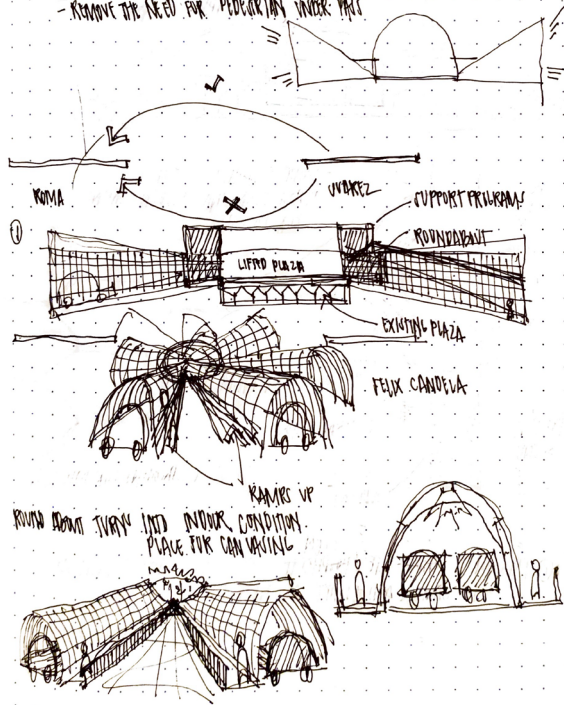 - REMOVE THE NEED FOR PEDESTRIAN UNDER PASS
ROMA
JUAREZ
SUPPORT PROGRAMS
ROUNDABOUT
①
LIFTED PLAZA
EXISTING PLAZA
FELIX CANDELA
RAMPS UP
ROUND ABOUT TURNS INTO INDOOR CONDITION
PLACE FOR CANVASING